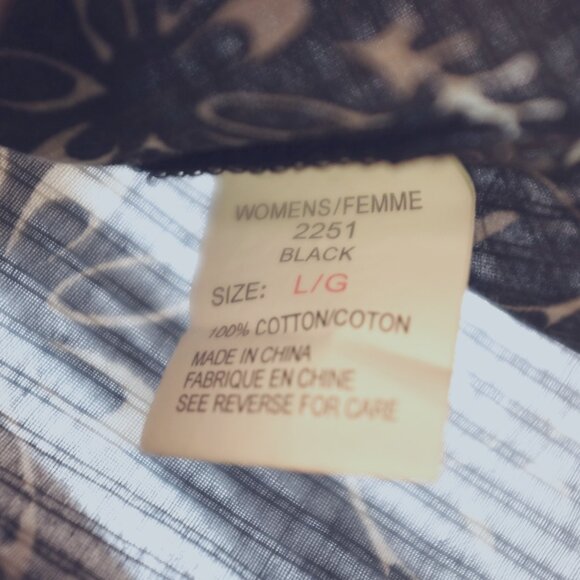 WOMENS/FEMME
2251
BLACK
SIZE: L/G
100% COTTON/COTON
MADE IN CHINA
FABRIQUE EN CHINE
SEE REVERSE FOR CARE